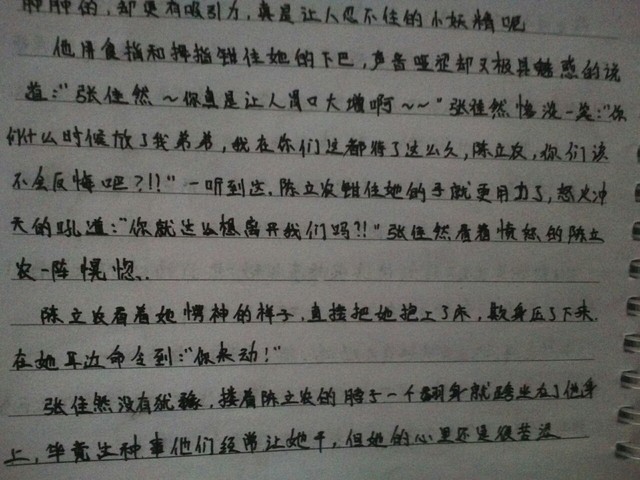 肿肿的，却更有吸引力，真是让人忍不住的小妖精呢
他用食指和拇指钳住她的下巴，声音哑涩却又极具魅惑的说
道：“张佳然～你真是让人胃口大增啊～～”张佳然惨淡一笑：“你
们什么时候放了我弟弟，我在你们这都待了这么久，陈立农，你们该
不会反悔吧？!!”一听到这，陈立农钳住她的手就更用力了，怒火冲
天的吼道：“你就这么想离开我们吗?!”张佳然看着愤怒的陈立
农一阵恍惚、
陈立农看着她愣神的样子，直接把她抱上了床，欺身压了下来，
在她耳边命令到：“你来动！”
张佳然没有犹豫，接着陈立农的脖子一个翻身就跨坐在了他身
上，毕竟这种事他们经常让她干，但她的心里还是很苦涩